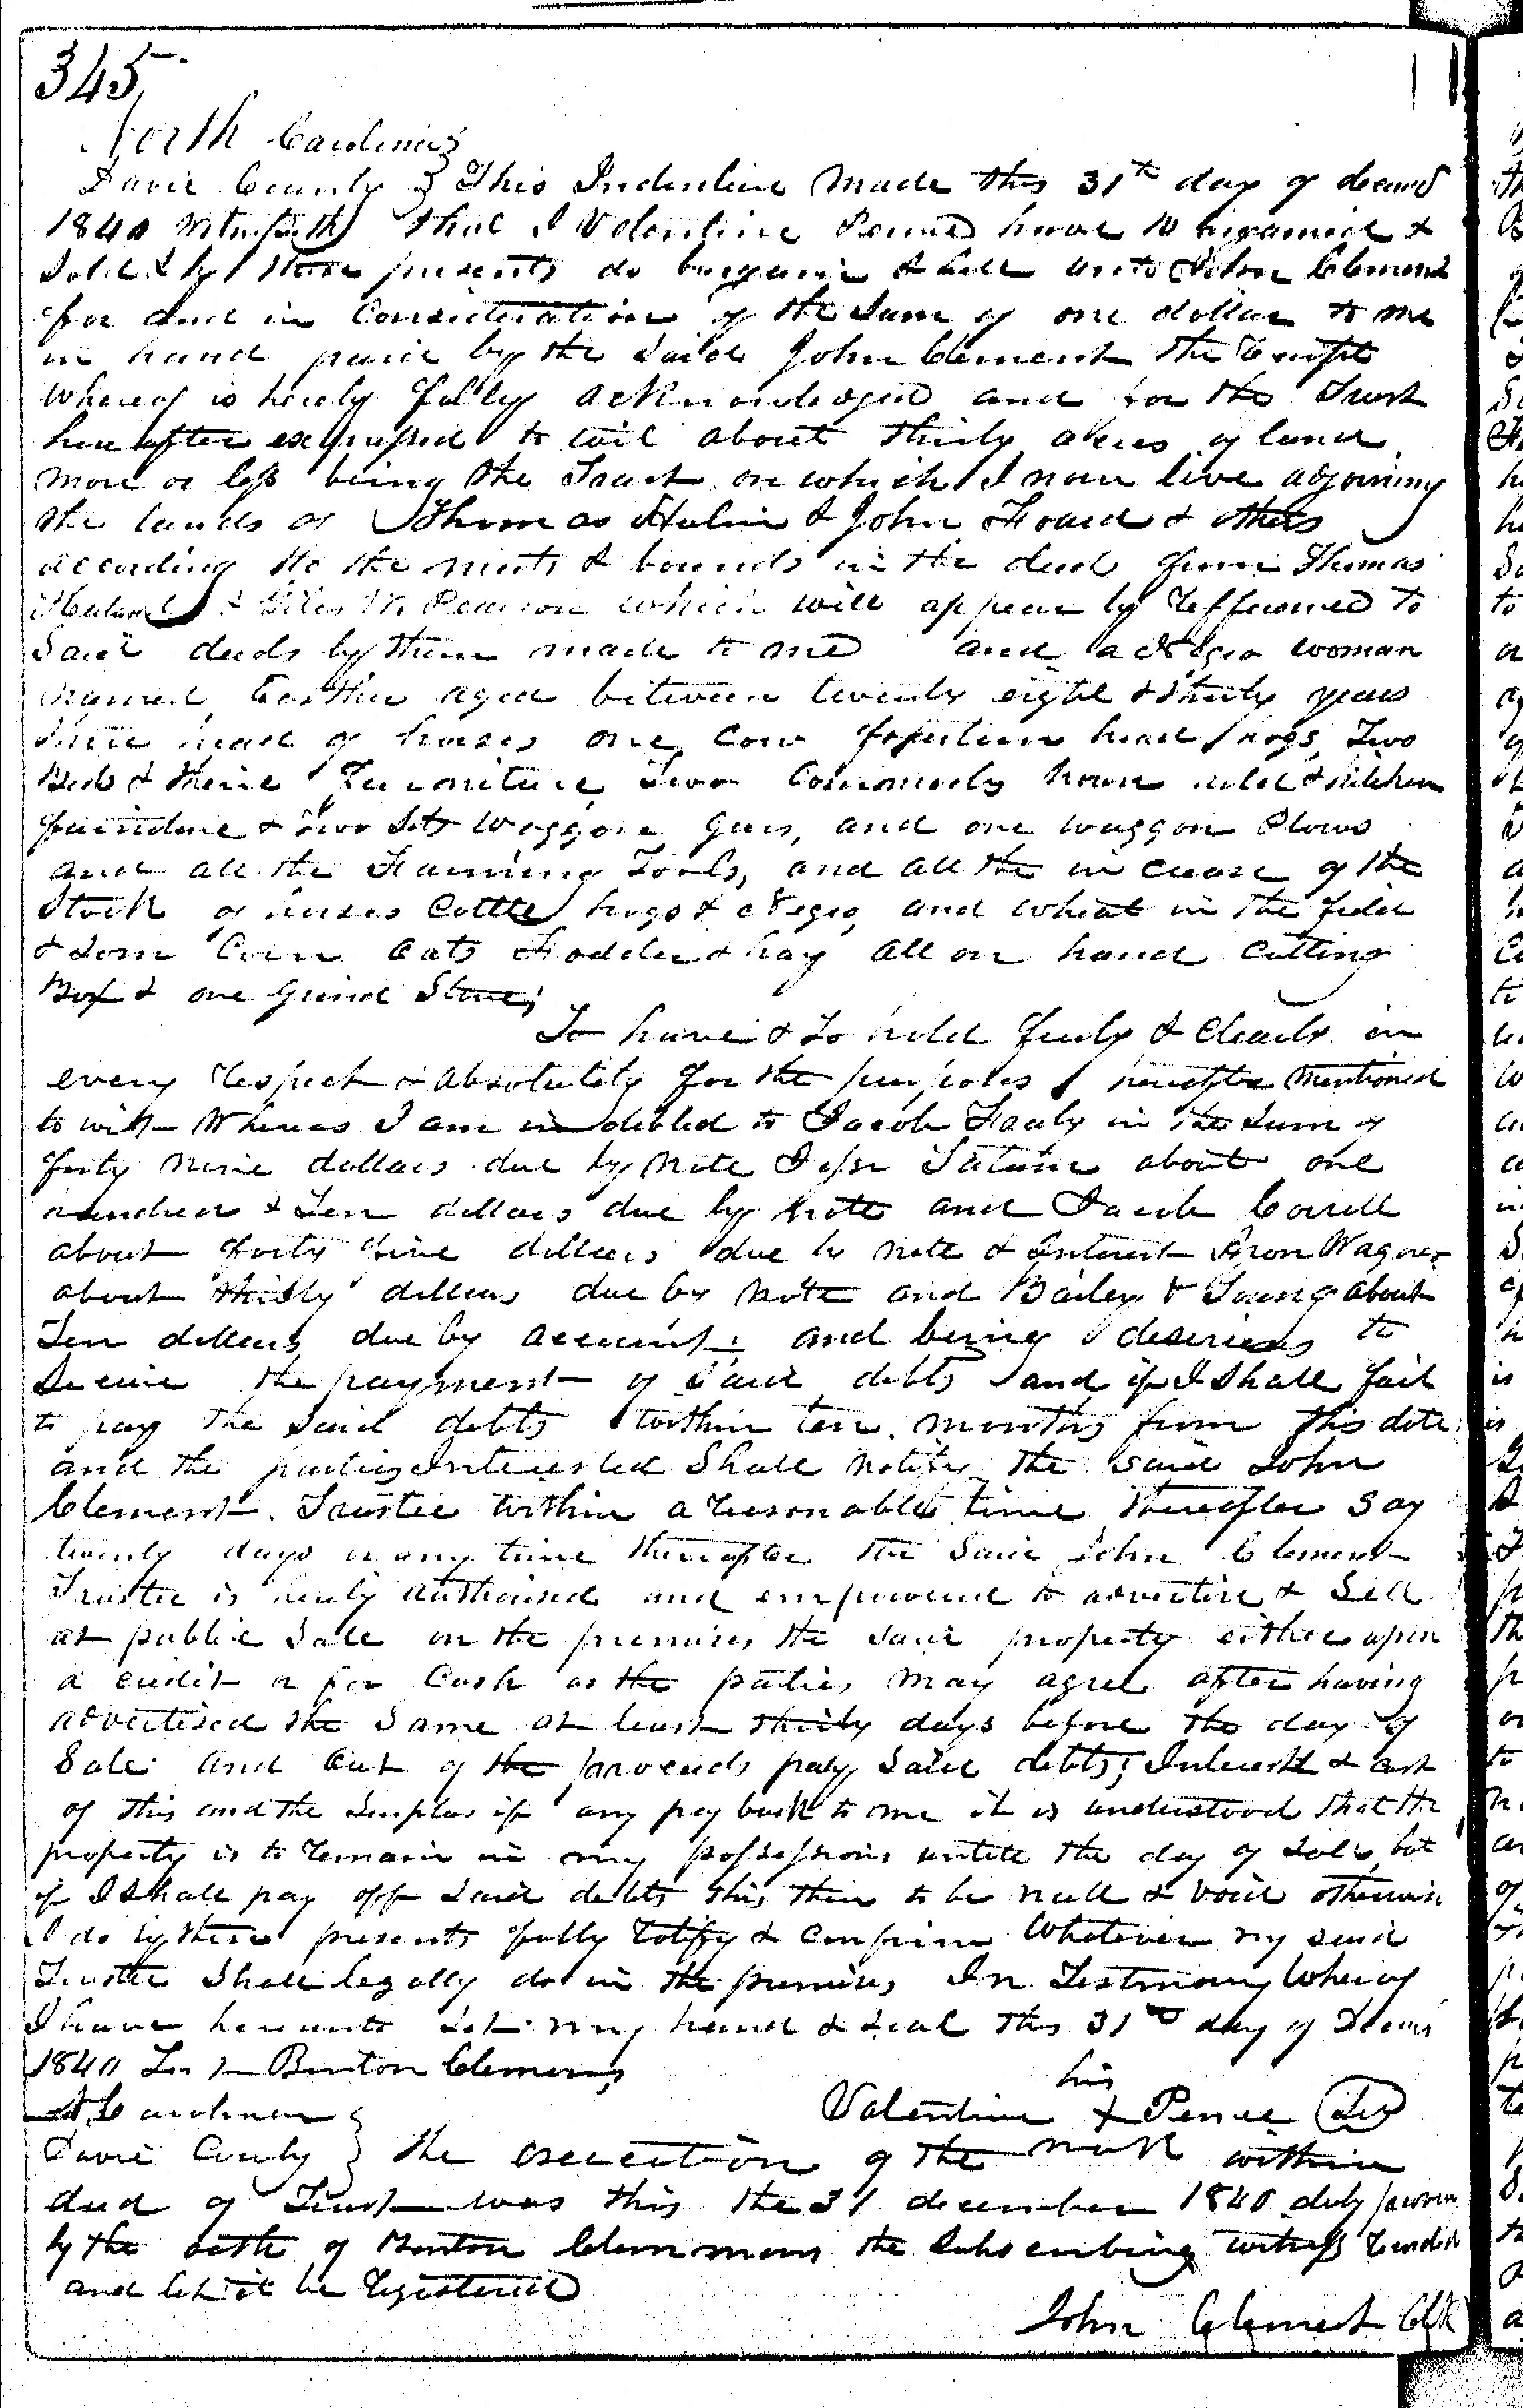 345
North Carolina }
Davie County } This Indenture Made this 31th day of decemr
1840 Witnesseth that I Valentine Penne have bargained &
Sold & by these presents do bargain & Sell unto John Clement
for and in Consideration of the Sum of one dollar to me
in hand paid by the Said John Clement the receipt
Whereof is hereby fully acknowledged and for the Trust
here after expressed to wit about thirty acres of land
more or less being the Tract on which I now live adjoining
the lands of Thomas & John Foard & others
according to the meets & bounds in the deed from Thomas
& Giles W. Pearson which will appear by refference to
Said deeds by them made to me and a Negro woman
named Easther aged between twenty eight & thirty years
three head of horses one Cow fourteen head hogs, Two
Beds & their Furniture, Two house hold & kitchen
furniture & Two Sets Waggon Gears, and one waggon Plows
and all the Farming Tools, and all the increase of the
Stock of horses Cattle hogs & Negro, and wheat in the field
& Som Corn Oats Fodder & hay all on hand Cutting
Box & one Grind Stone;
To have & To hold freely & Clearly in
every respect & absolutely for the purposes hereafter Mentioned
to wit Whereas I am indebted to Jacob Fraly in the Sum of
forty nine dollars due by note Jesse Tatum about one
hundred & Ten dollars due by note and Jacob Correll
about forty five dollars due by note & Interest Aron Wagner
about thirty dollars due by note and Bailey & Young about
Ten dollars due by account; and being desirious to
Secure the payment of Said debts and if I Shall fail
to pay the Said debts within ten months from this date
and the parties Interested Shall notify the said John
Clement Trustee within a reasonable time thereafter Say
twenty days or any time thereafter the Said John Clement
Trustee is hereby authorised and empowered to advertise & Sell
at public Sale on the premises the Said property either upon
a credit or for Cash as the parties may agree after having
advertised the Same at least thirty days before the day of
Sale and out of the proceeds pay Said debts, Interest & cost
of this and the Surplus if any pay back to me it is understood that the
property is to remain in my possession untill the day of Sale, but
if I Shall pay off Said debts this then to be null & void otherwise
I do by these presents fully ratify & confirm Whatever my said
Trustee Shall legally do in the premises, In Testimony Whereof
I have hereunto Set my hand & Seal this 31st day of Decemr
1840 Test Burton Clemmons
his
Valentine X Penne (Seal)
mark
N. Carolina }
Davie County } the execution of the within
deed of Trust was this the 31 december 1840 duly proven
by the oath of Burton Clemmons the Subscribing witness
and let it be registered
John Clement Clk